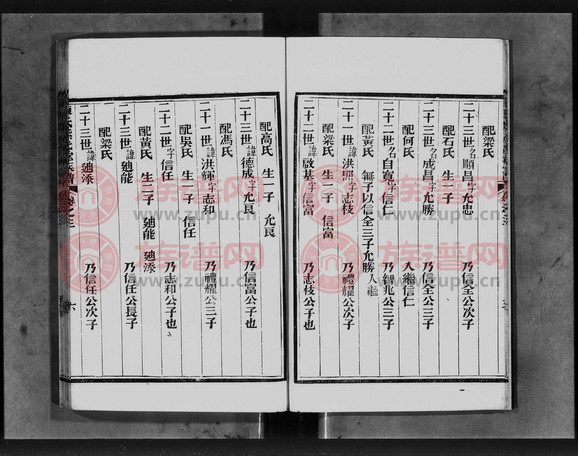 配梁氏
二十三世名順昌字允忠 乃信全公次子
配石氏 生一子
二十三世名成昌字允勝 乃信全公三子
配何氏 入繼信仁
二十二世名自寬字信仁 乃智兆公三子
配黃氏 無子以信全三子允勝入繼
二十一世諱洪照字志枝 乃禮耀公次子
配梁氏 生一子 信富
二十二世諱啟基字信富 乃志枝公子也
配高氏 生一子 允良
二十三世諱德成字允良 乃信富公子也
配馮氏
二十一世諱洪輝字志和 乃禮耀公三子
配吳氏 生一子 信任
二十二世字信任 乃志和公子也
配黃氏 生二子 廸能 廸添
二十三世諱廸能 乃信任公長子
配梁氏
二十三世諱廸添 乃信任公次子
卷之三
六
族谱网
www.zupu.cn
族谱网
www.zupu.cn
族谱网
www.zupu.cn
族谱网
www.zupu.cn